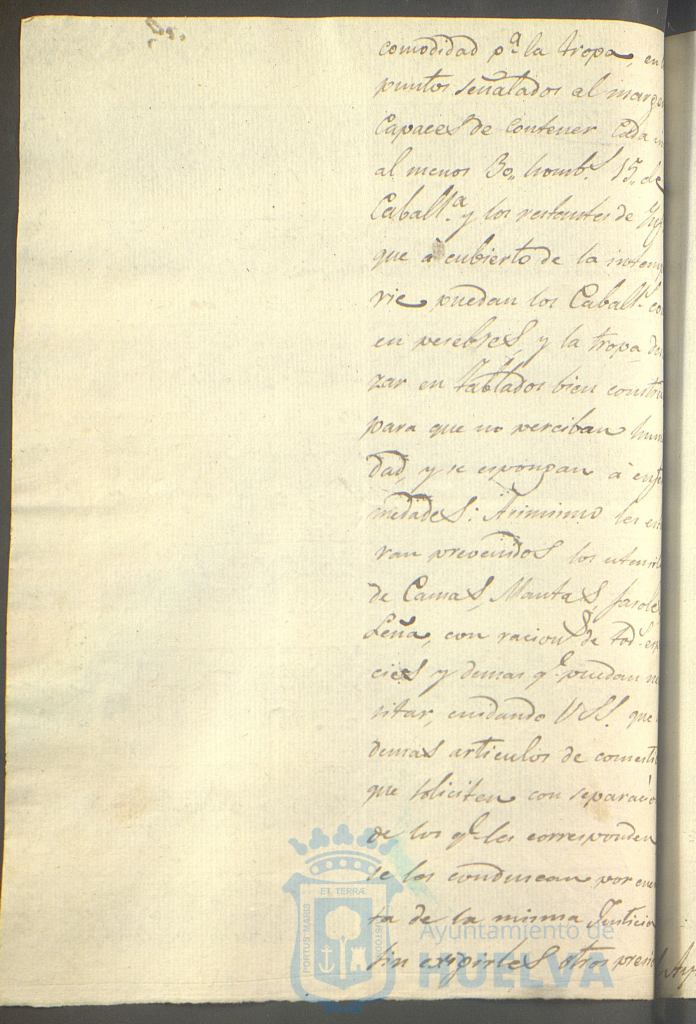 comodidad p.ª la tropa, en
puntos señalados al marge
Capaces de contener Cada
al menos 30,, homb.s 15,, de
Caball.ª y los restantes de Inf
que à cubierto de la intem
rie puedan los Caball.
en peselres, y la tropa
zar en tablados bien constru
para que no perciban hum
dad, y se espongan à enf
medades: Asimismo les
ran prevenidos los utensil
de Camas, Mantas, farole
Leña, con racion.s de tod.
cies y demas q.e puedan
sitar, cuidando VSS. que
demas articulos de comesti
que soliciten con separacio
de los q.e les corresponden
se les conduscan por cuen
ta de la misma Justicia
sin exigirles otros
PORTUS MARIS
ET TERRÆ
CUSTODIA
Ayuntamiento de
HUELVA